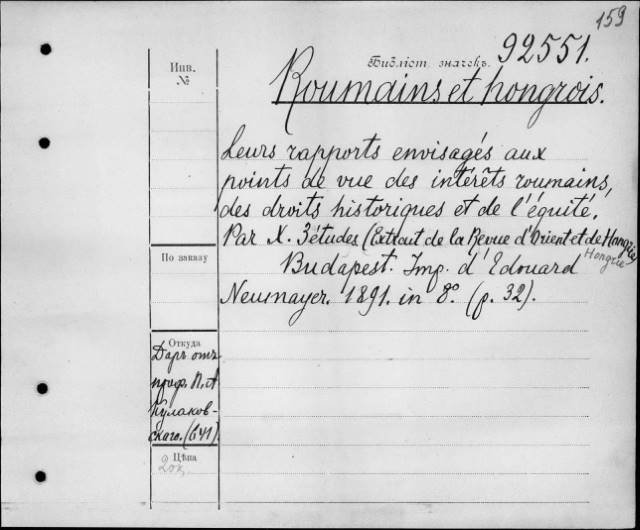 159
Инв.
№
Библіот. значекъ. 92551.
Roumains et hongrois.
Leurs rapports envisagés aux
points de vue des intérêts roumains,
des droits historiques et de l'équité.
Par X. 3 études (Extrait de la Revue d'Orient et de Hongrie
Hongrie
Budapest. Imp. d'Edouard
Neumayer. 1891. in 8º. (p. 32).
По заказу
Откуда
Даръ отъ
проф. П. А
Кулаков-
скаго. (641)
Цѣна